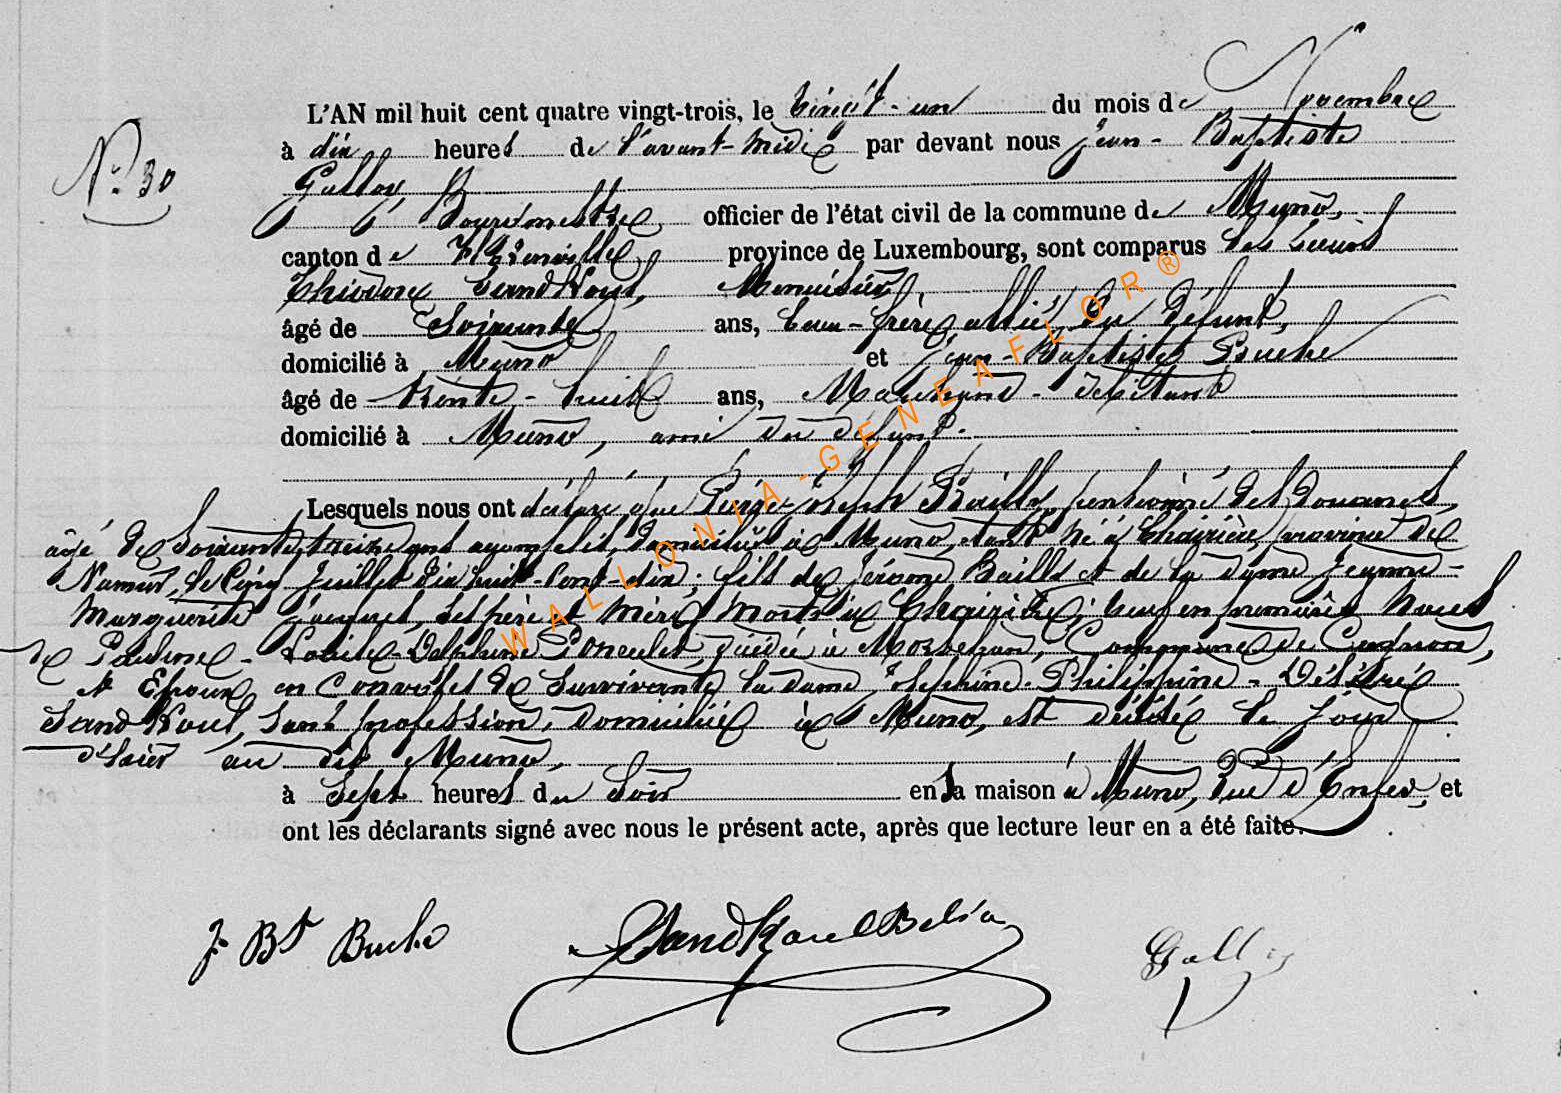 L'AN mil huit cent quatre vingt-trois, le vingt-un du mois de Novembre
N° 30
à dix heures de l'avant-midi par devant nous Jean-Baptiste
Galloy, Bourgmestre officier de l'état civil de la commune de Muno,
canton de Florenville province de Luxembourg, sont comparus les sieurs
Théodore Sandkoul, Menuisier
âgé de Soixante ans, beau-frère allié du défunt,
domicilié à Muno et Jean-Baptiste Buche
âgé de trente-huit ans, Marchand-
domicilié à Muno, ami du défunt.
Lesquels nous ont déclaré que Pierre-Joseph Bailly, pensionné des Douanes,
âgé de Soixante treize ans accomplis, domicilié à Muno, étant né à Chairière, province de
Namur, le Cinq Juillet dix huit-Cent-dix; fils de Jérome Bailly et de la dame Jeanne-
Marguerite Jacquet, ses père et mère, morts à Chairière; veuf en premières noces
de Pauline-Louise-Delphine Poncelet, décédée à Mortehan, Commune de Cugnon,
et Epoux en de Survivante la dame Joséphine-Philippine-Désirée
Sandkoul, sans profession, domiciliée à Muno, est décédé le jour
d'hier au dit Muno,
à Sept heures du Soir en sa maison à Muno, Rue d'Enfer, et
ont les déclarants signé avec nous le présent acte, après que lecture leur en a été faite.
J. Bt Buche Sandkoul Galloy
WALLONIA-GENEAFLOR®